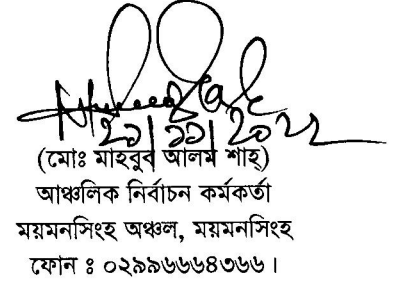 ২১/১১/২০২২
(মোঃ মাহবুব আলম শাহ্)
আঞ্চলিক নির্বাচন কর্মকর্তা
ময়মনসিংহ অঞ্চল, ময়মনসিংহ
ফোন ঃ ০২৯৯৬৬৬৪৩৬৬।